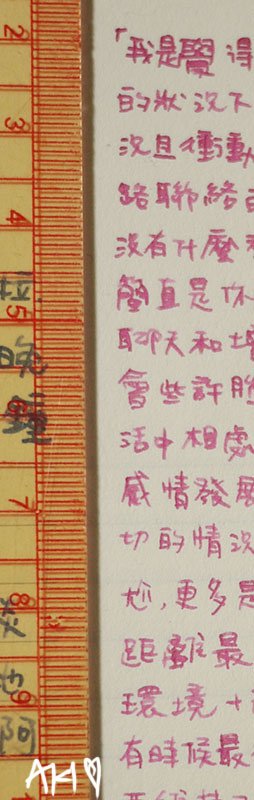 「我是覺得
的狀況下
況且衝動
路聯絡
沒有什麼
簡直是你
聊天和
會些許
活中相處
感情發展
切的情況
尬,更多是
距離最
環境+
有時候最
2
3
4
5
晚
鐘
7
8
也
9
啊
AKI♡